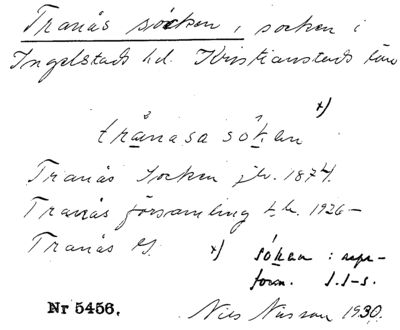 Tranås socken, socken i
Ingelstads hd. Kristianstads län
x)
trånasa sókan
Tranås Socken jb. 1874.
Tranås församling t.k. 1926-
Tranås ks. x) sókan : uppe-
form. S.S-s.
Nr 5456. Nils Nilsson 1930.